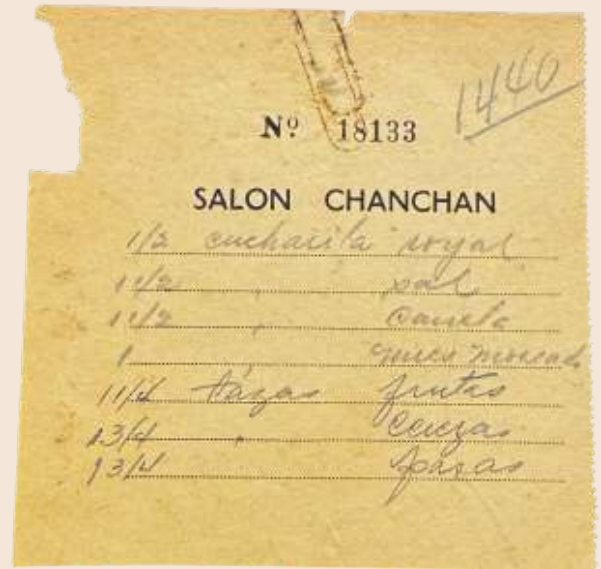 1440
Nº 18133
SALON CHANCHAN
1/2 cucharita royal
1 1/2 " sal
1 1/2 " Canela
1 nuez moscada
1 1/4 tazas frutas
1 3/4 " Cerezas
1 3/4 pasas